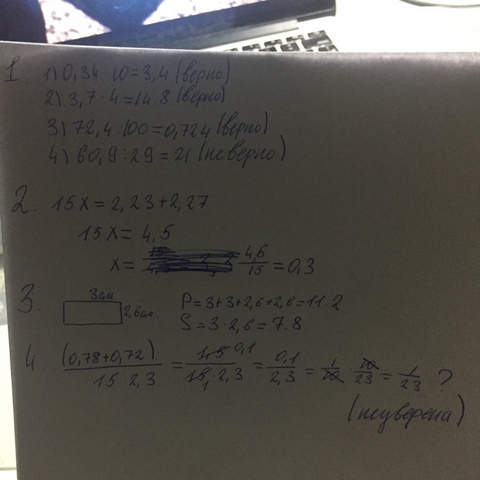 1. 1) 0,34 · 10 = 3,4 (верно)
2) 3,7 · 4 = 14.8 (верно)
3) 72,4 : 100 = 0,724 (верно)
4) 60,9 : 29 = 21 (неверно)
2. 15x = 2,23 + 2,27
15x = 4,5
x = 4,5/15 = 0,3
3. 3см
2,6см
P = 3+3+2,6+2,6 = 11.2
S = 3 · 2,6 = 7.8
4 (0,78+0,72)/15 · 2,3 = 1,5 0,1/15 1 · 2,3 = 0,1/2,3 = 1/10 · 10/23 = 1/23 ?
(не уверена)